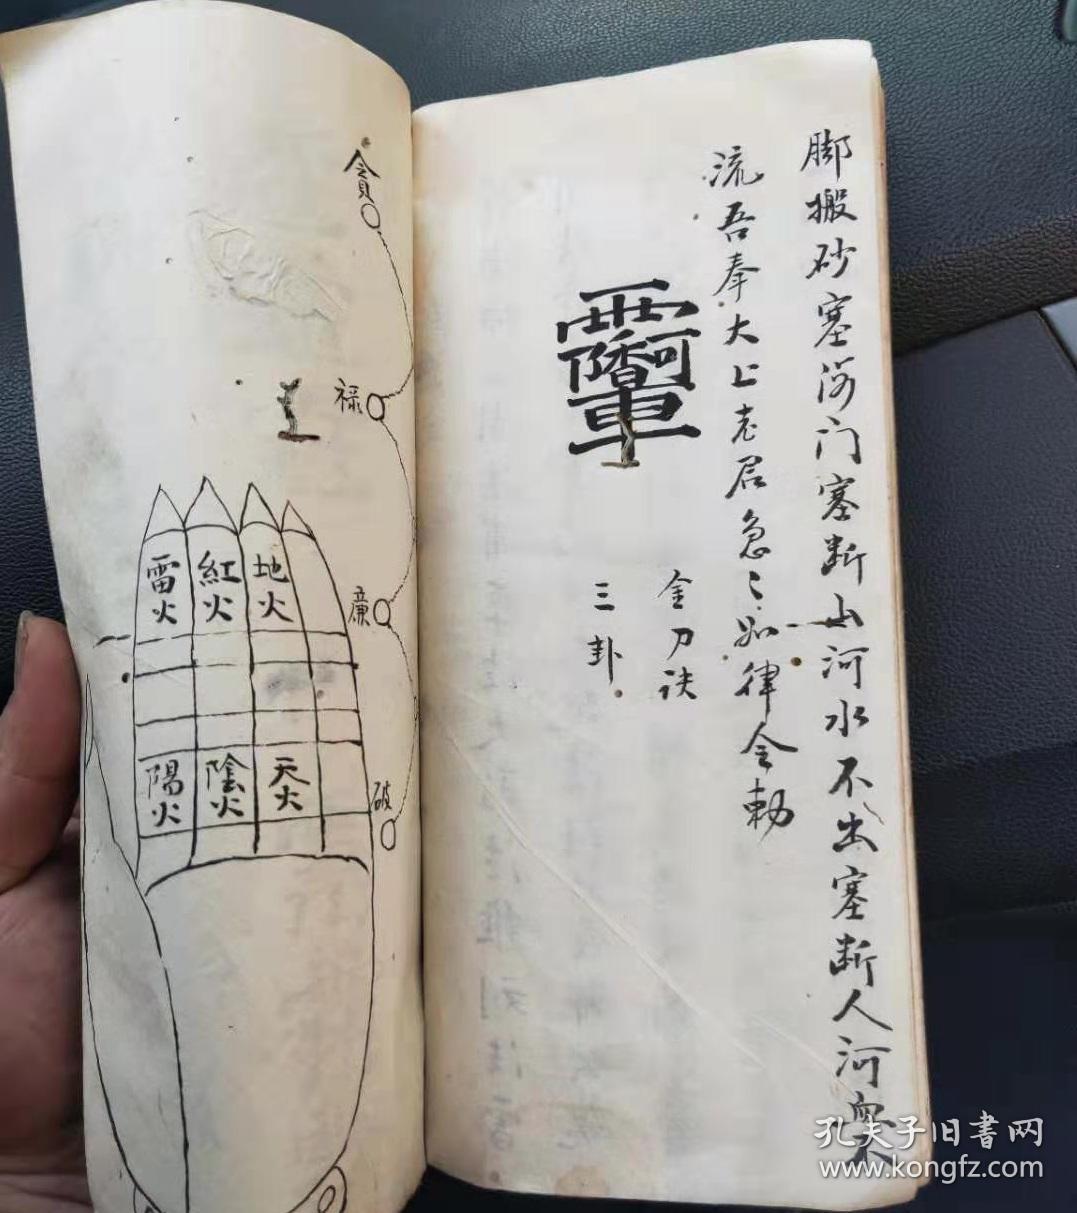 脚搬砂塞河门塞断山河水不出塞断人河血不
流吾奉大上老君急〻如律令勅
金刀诀
三卦
貪
禄
廉
破
雷火
紅火
地火
陽火
陰火
天火
孔夫子旧書网
www.kongfz.com